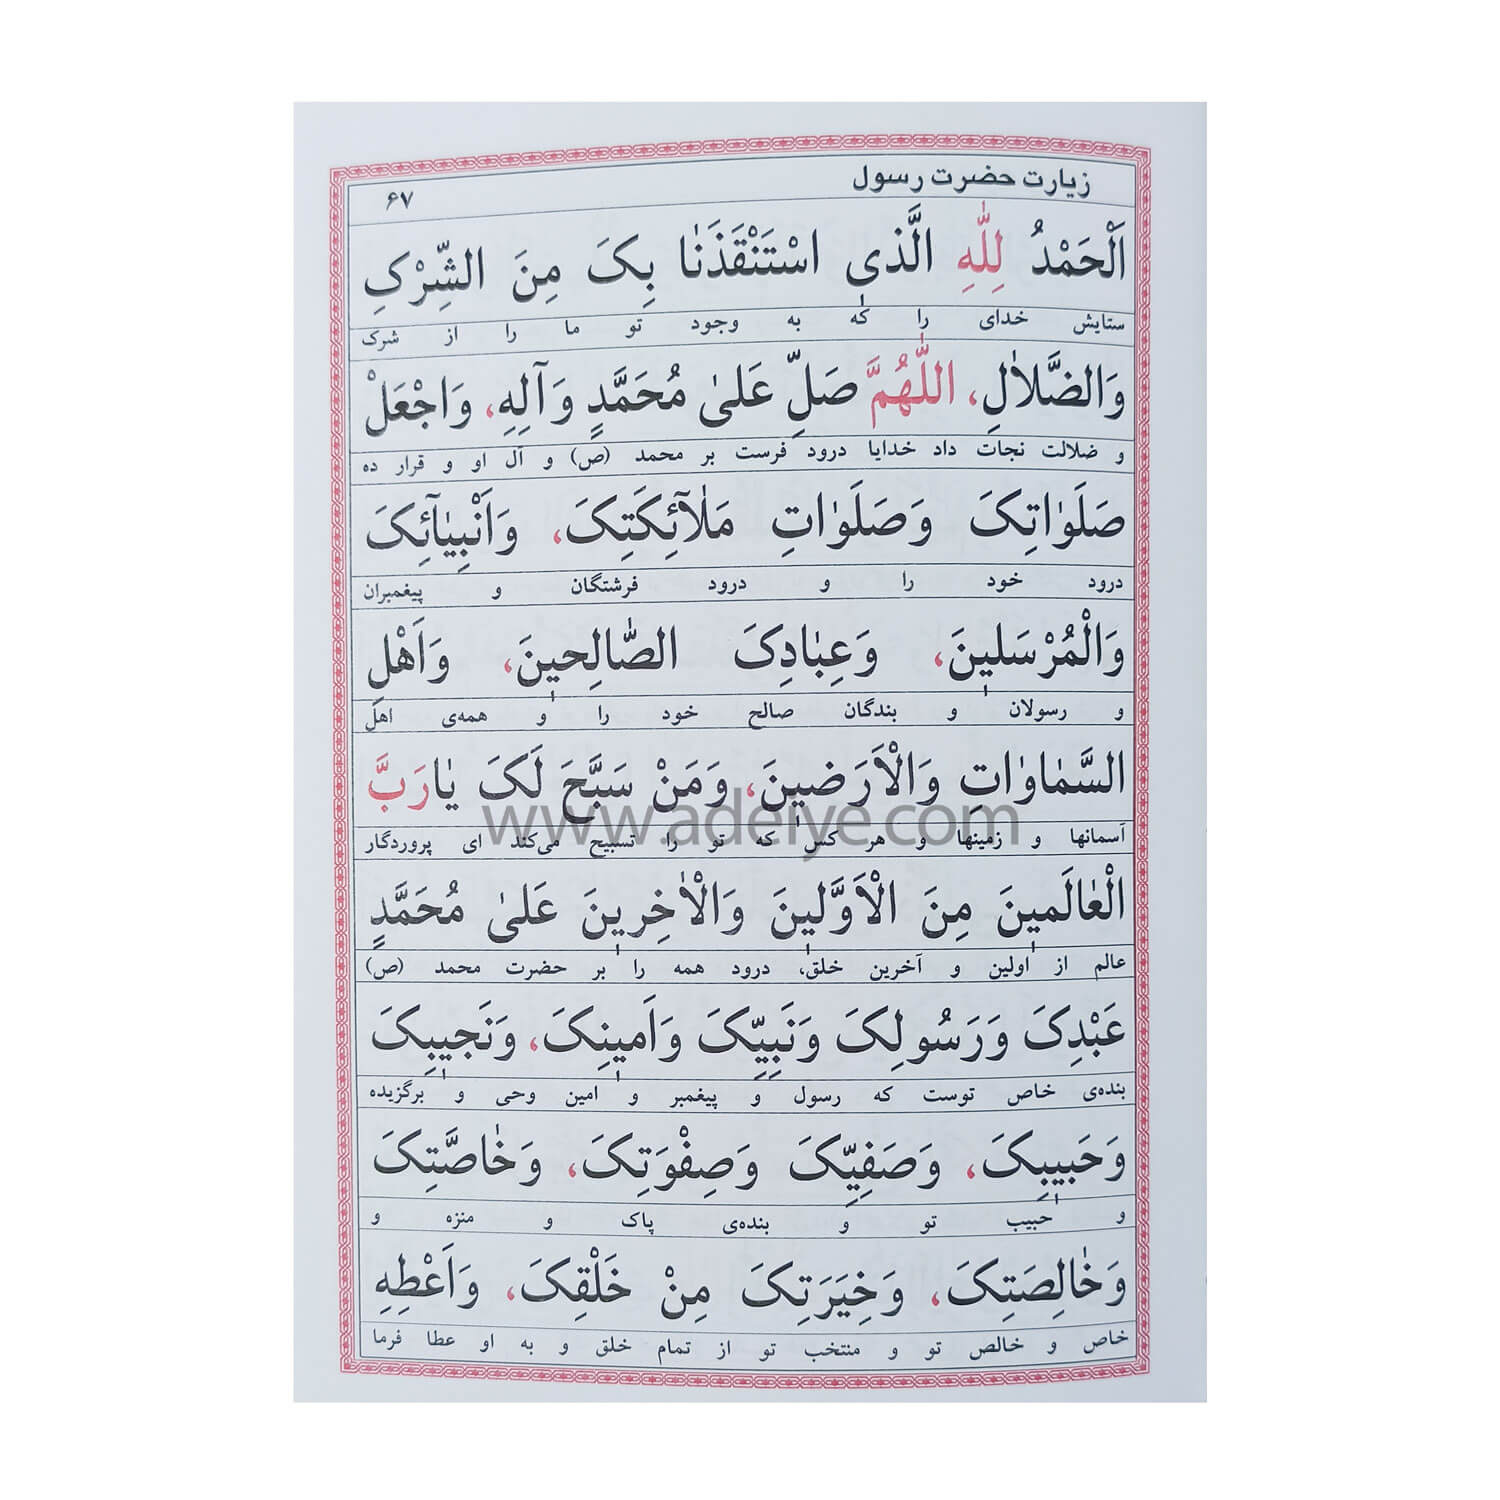 زیارت حضرت رسول
۶۷
اَلْحَمْدُ لِلّٰهِ الَّذی اسْتَنْقَذَنٰا بِکَ مِنَ الشِّرْکِ
ستایش خدای را که به وجود تو ما را از شرک
وَالضَّلاٰلِ، اللّٰهُمَّ صَلِّ عَلیٰ مُحَمَّدٍ وَآلِهِ، وَاجْعَلْ
و ضلالت نجات داد خدایا درود فرست بر محمد (ص) و آل او و قرار ده
صَلَوٰاتِکَ وَصَلَوٰاتِ مَلاٰئِکَتِکَ، وَاَنْبِیٰآئِکَ
درود خود را و درود فرشتگان و پیغمبران
وَالْمُرْسَلینَ، وَعِبٰادِکَ الصّٰالِحینَ، وَاَهْلِ
و رسولان و بندگان صالح خود را و همه‌ی اهل
السَّمٰاوٰاتِ وَالْاَرَضینَ، وَمَنْ سَبَّحَ لَکَ یٰارَبَّ
www.adeiye.com
آسمانها و زمینها و هر کس که تو را تسبیح می‌کند ای پروردگار
الْعٰالَمینَ مِنَ الْاَوَّلینَ وَالْاٰخِرینَ عَلیٰ مُحَمَّدٍ
عالم از اولین و آخرین خلق، درود همه را بر حضرت محمد (ص)
عَبْدِکَ وَرَسُولِکَ وَنَبِیِّکَ وَاَمینِکَ، وَنَجیبِکَ
بنده‌ی خاص توست که رسول و پیغمبر و امین وحی و برگزیده
وَحَبیبِکَ، وَصَفِیِّکَ وَصِفْوَتِکَ، وَخٰاصَّتِکَ
و حبیب تو و بنده‌ی پاک و منزه و
وَخٰالِصَتِکَ، وَخِیَرَتِکَ مِنْ خَلْقِکَ، وَاَعْطِهِ
خاص و خالص تو و منتخب تو از تمام خلق و به او عطا فرما